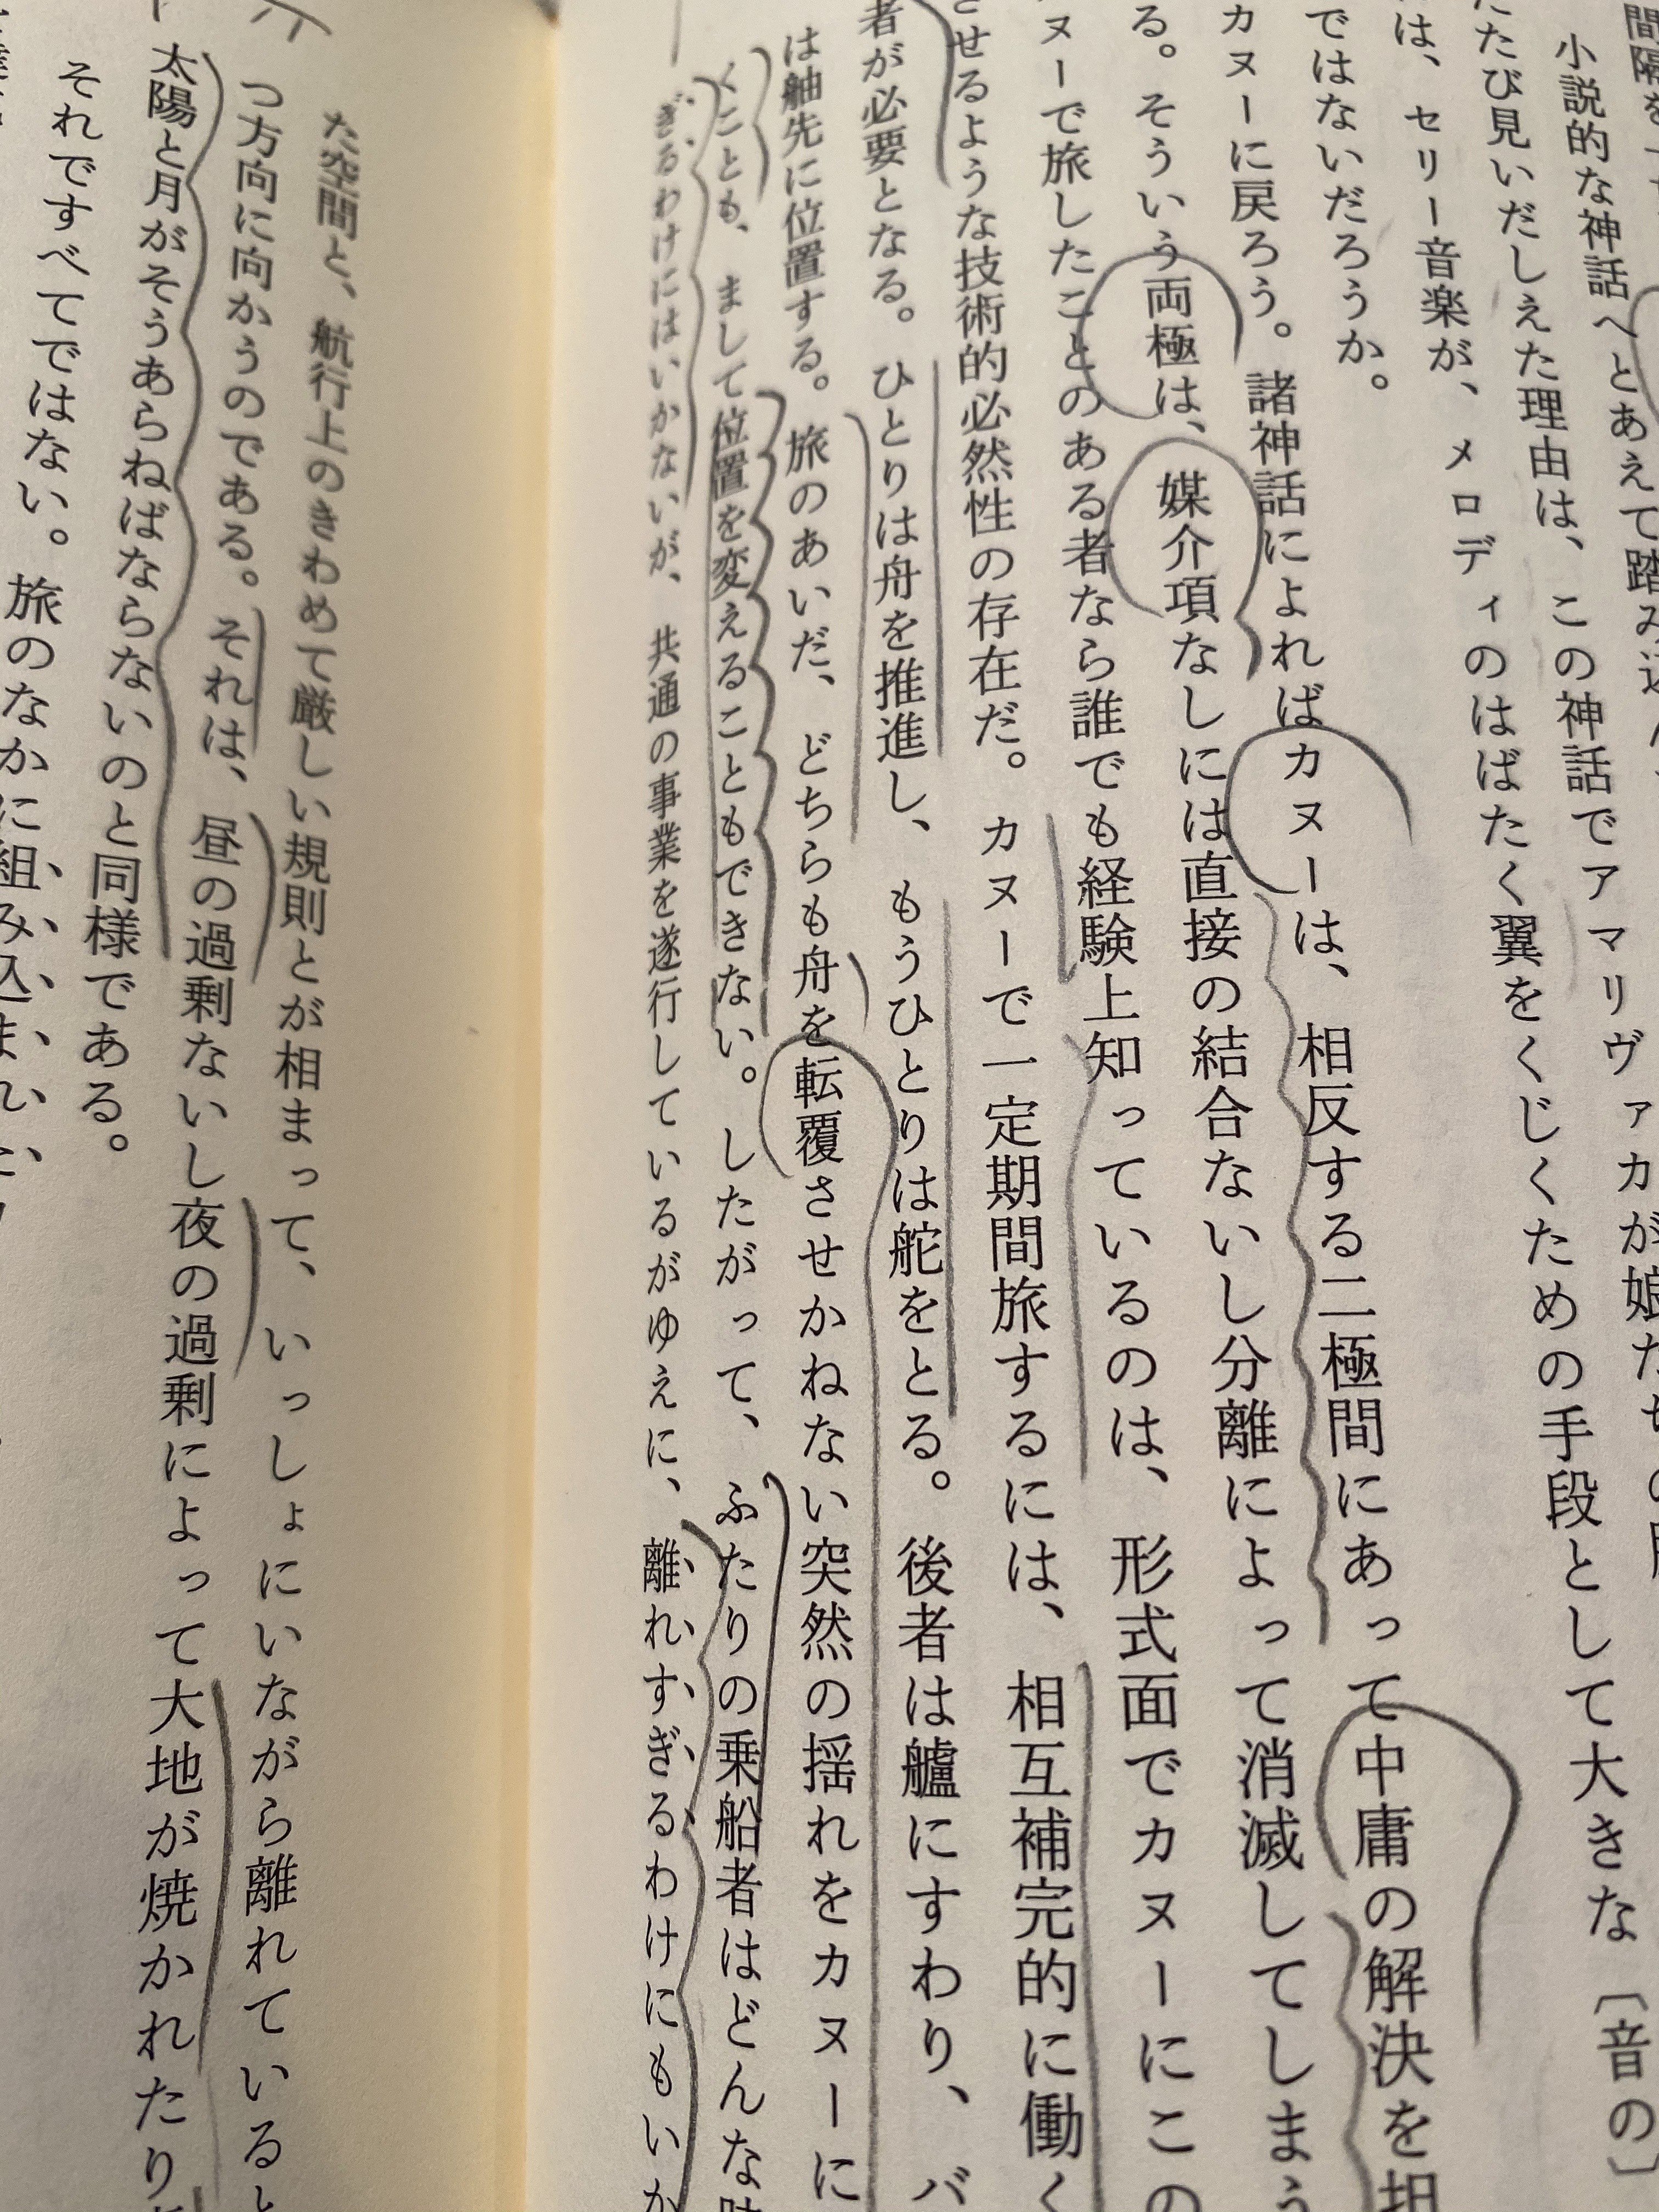 間隔を
小説的な神話へとあえて踏み込
たたび見いだしえた理由は、この神話でアマリヴァカが娘たちの
は、セリー音楽が、メロディのはばたく翼をくじくための手段として大きな〔音の〕
ではないだろうか。
カヌーに戻ろう。諸神話によればカヌーは、相反する二極間にあって中庸の解決を担
る。そういう両極は、媒介項なしには直接の結合ないし分離によって消滅してしまう
ヌーで旅したことのある者なら誰でも経験上知っているのは、形式面でカヌーにこの
させるような技術的必然性の存在だ。カヌーで一定期間旅するには、相互補完的に働く
者が必要となる。ひとりは舟を推進し、もうひとりは舵をとる。後者は艫にすわり、バ
は舳先に位置する。旅のあいだ、どちらも舟を転覆させかねない突然の揺れをカヌーに
くことも、まして位置を変えることもできない。したがって、ふたりの乗船者はどんな時
ぎるわけにはいかないが、共通の事業を遂行しているがゆえに、離れすぎるわけにもいか
た空間と、航行上のきわめて厳しい規則とが相まって、いっしょにいながら離れていると
つ方向に向かうのである。それは、昼の過剰ないし夜の過剰によって大地が焼かれたり
太陽と月がそうあらねばならないのと同様である。
それですべてではない。旅のなかに組み込まれた